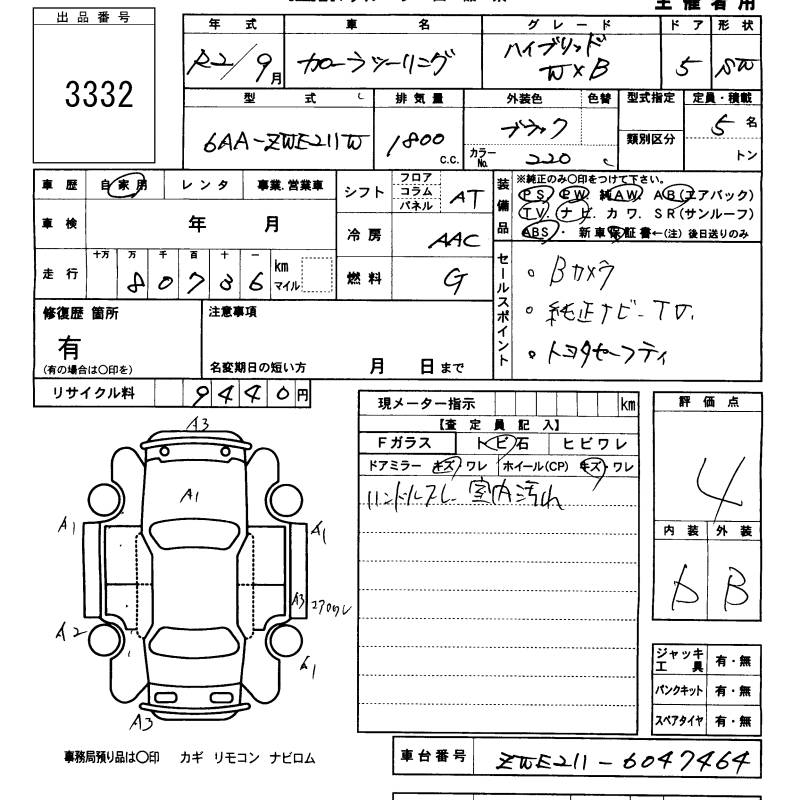 主催者用
出品番号
3332
年式 車名 グレード ドア 形状
R2/9月 カローラツーリング ハイブリッド W×B 5 SW
型式 排気量 外装色 色替 型式指定 定員・積載
6AA-ZWE211W 1800 c.c. ブラック 類別区分 5名
カラーNo. 220 トン
車歴 自家用 レンタ 事業.営業車 シフト フロア コラム パネル AT
装備品 ※純正のみ○印をつけて下さい。
PS. PW. 純AW. AB(エアバック)
TV. ナビ. カワ. SR(サンルーフ)
ABS・ 新車保証書←(注) 後日送りのみ
車検 年 月 冷房 AAC
走行 十万 万 千 百 十 一
80736 km マイル 燃料 G
セールスポイント
・Bカメラ
・純正ナビ-TV.
・トヨタセーフティ
修復歴 箇所 注意事項
有
(有の場合は○印を) 名変期日の短い方 月 日まで
リサイクル料 9440円
現メーター指示 km
評価点
【査定員記入】
Fガラス トビ石 ヒビワレ
ドアミラー キズ・ワレ ホイール(CP) キズ・ワレ
ハンドルスレ 室内汚れ
4
内装 外装
B
A3
A1
A1 A1
A3
A2 A1
A3
ジャッキ工具 有・無
パンクキット 有・無
スペアタイヤ 有・無
事務局預り品は○印 カギ リモコン ナビロム
車台番号 ZWE211-6047464